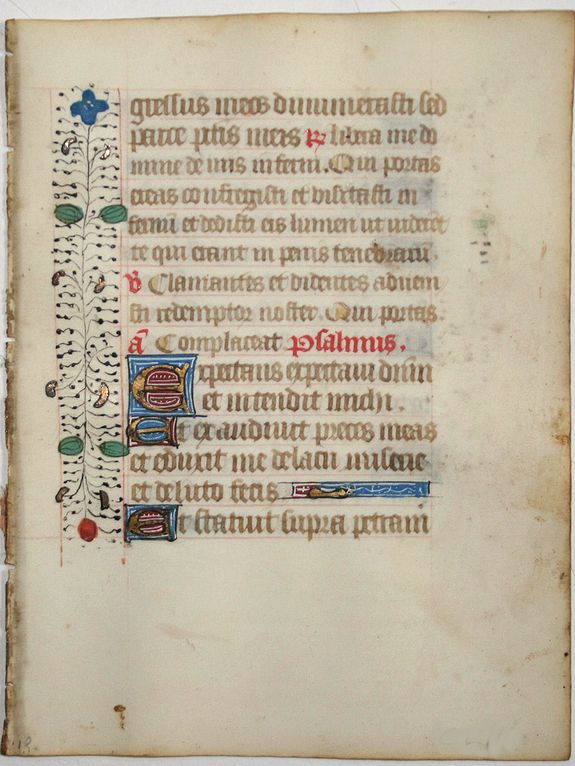 gressus meos dinumerasti sed
parce pctis meis R libera me do
mine de uiis inferni. Qui portas
ereas confregisti et visitasti in
fernū et dedisti eis lumen ut uiderēt
te qui erant in penis tenebrarū.
V Clamantes et dicentes aduem
sti redemptor noster. Qui portas.
a Complaceat psalmus.
Expectans expectaui dn̄m
et intendit michi.
Et exaudiuit preces meas
et eduxit me de lacu miserie
et de luto fecis
Et statuit supra petram